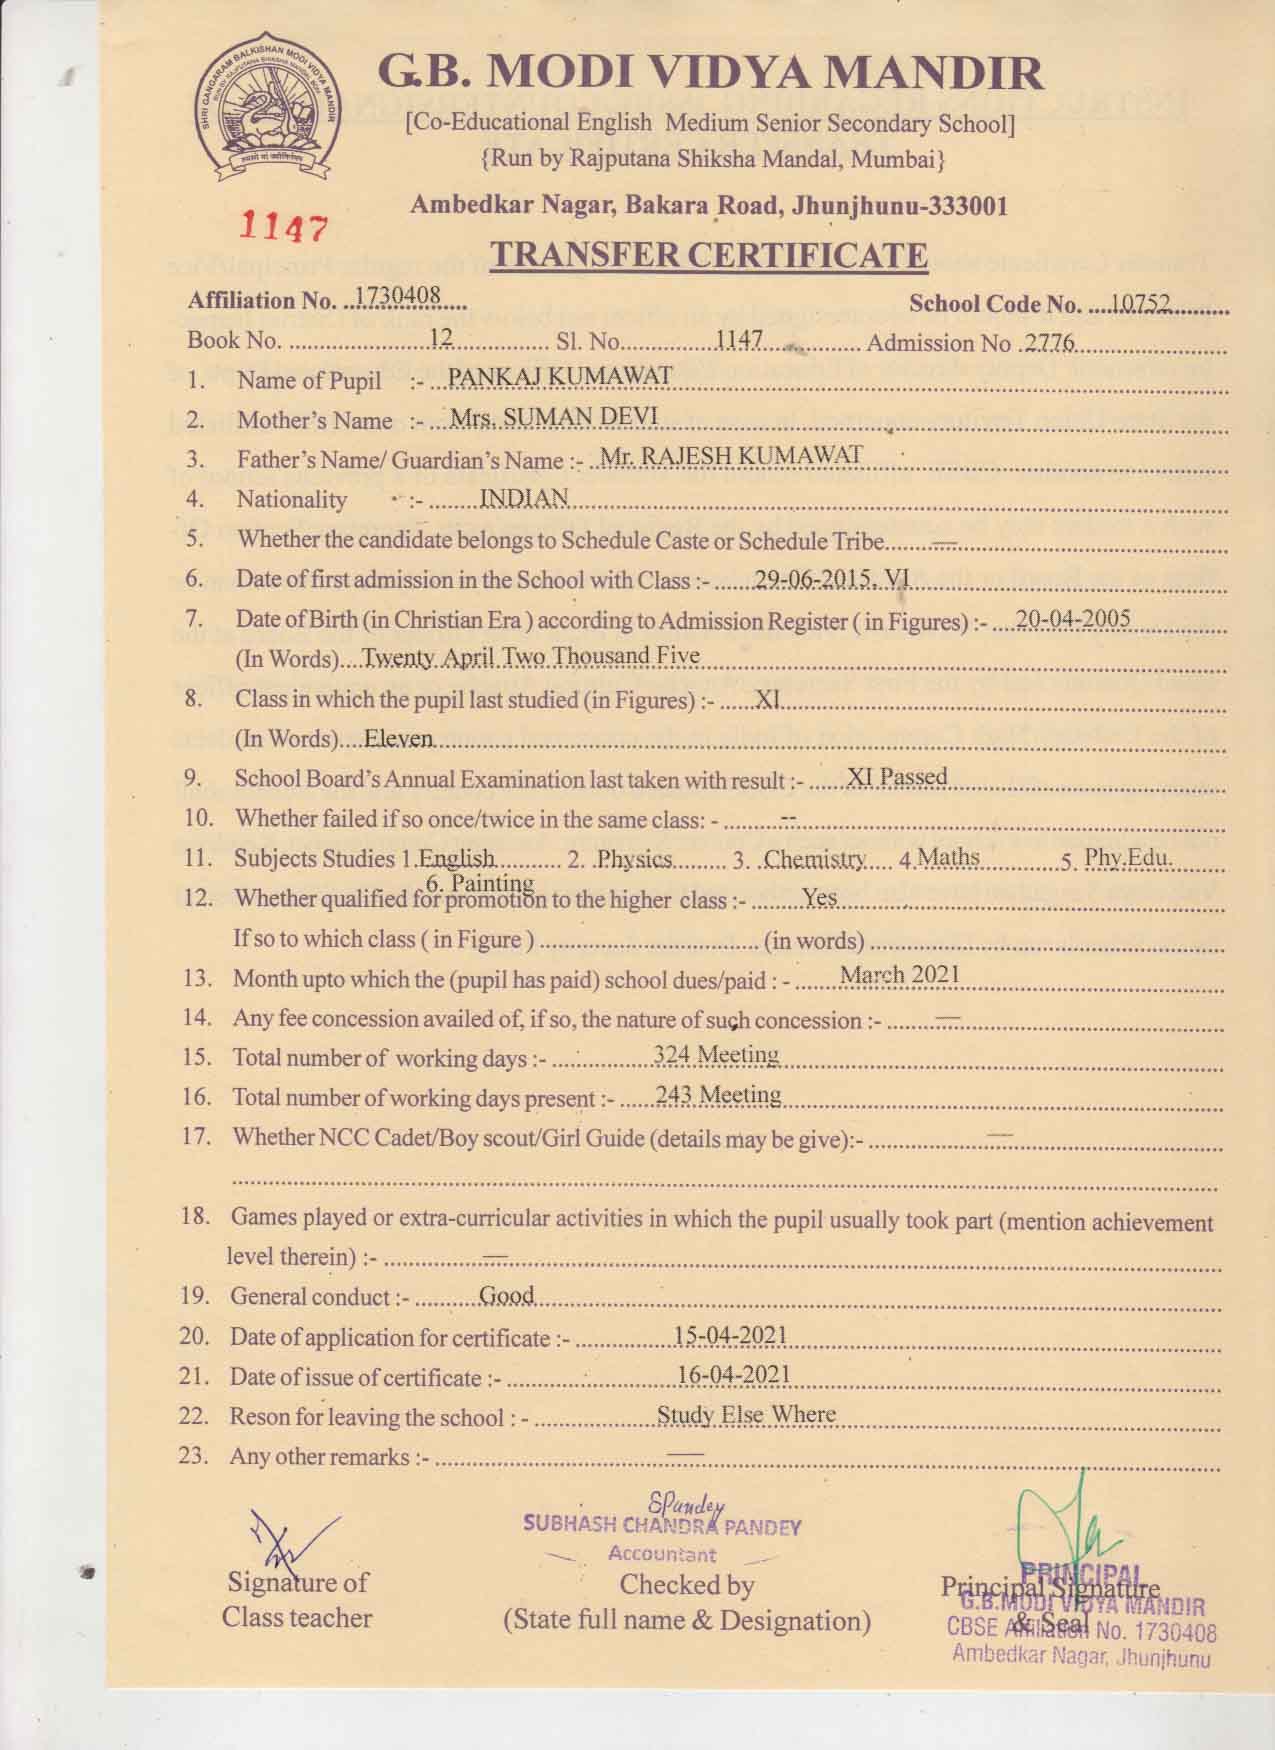 SHRI GANGARAM BALKISHAN MODI VIDYA MANDIR
RUN BY RAJPUTANA SHIKSHA MANDAL
तमसो मा ज्योतिर्गमय
G.B. MODI VIDYA MANDIR
[Co-Educational English Medium Senior Secondary School]
{Run by Rajputana Shiksha Mandal, Mumbai}
Ambedkar Nagar, Bakara Road, Jhunjhunu-333001
1147
TRANSFER CERTIFICATE
Affiliation No. ..1730408.... School Code No. ....10752..........
Book No. ........................12................ Sl. No...............1147................ Admission No .2776........................
1. Name of Pupil :- ...PANKAJ KUMAWAT
2. Mother's Name :- ...Mrs. SUMAN DEVI
3. Father's Name/ Guardian's Name :- ..Mr. RAJESH KUMAWAT
4. Nationality :- ........INDIAN
5. Whether the candidate belongs to Schedule Caste or Schedule Tribe.......—
6. Date of first admission in the School with Class :- ......29-06-2015, VI
7. Date of Birth (in Christian Era ) according to Admission Register ( in Figures) :- ....20-04-2005
(In Words)....Twenty April Two Thousand Five
8. Class in which the pupil last studied (in Figures) :- ......XI
(In Words)....Eleven
9. School Board's Annual Examination last taken with result :- ......XI Passed
10. Whether failed if so once/twice in the same class: - ..........--
11. Subjects Studies 1.English........... 2. .Physics......... 3. .Chemistry.... 4.Maths.............5. Phy.Edu.
6. Painting
12. Whether qualified for promotion to the higher class :- .........Yes
If so to which class ( in Figure ) .................................... (in words) ..........................................................
13. Month upto which the (pupil has paid) school dues/paid : - ........March 2021
14. Any fee concession availed of, if so, the nature of such concession :- ........—
15. Total number of working days :- .................324 Meeting
16. Total number of working days present :- ......243 Meeting
17. Whether NCC Cadet/Boy scout/Girl Guide (details may be give):- ....................—
18. Games played or extra-curricular activities in which the pupil usually took part (mention achievement
level therein) :- .................—
19. General conduct :- ...........Good
20. Date of application for certificate :- .................15-04-2021
21. Date of issue of certificate :- .............................16-04-2021
22. Reson for leaving the school : - ....................Study Else Where
23. Any other remarks :- .......................................—
SPandey
SUBHASH CHANDRA PANDEY
Accountant
Signature of
Class teacher
Checked by
(State full name & Designation)
Principal Signature
& Seal
PRINCIPAL
G.B.MODI VIDYA MANDIR
CBSE Affiliation No. 1730408
Ambedkar Nagar, Jhunjhunu